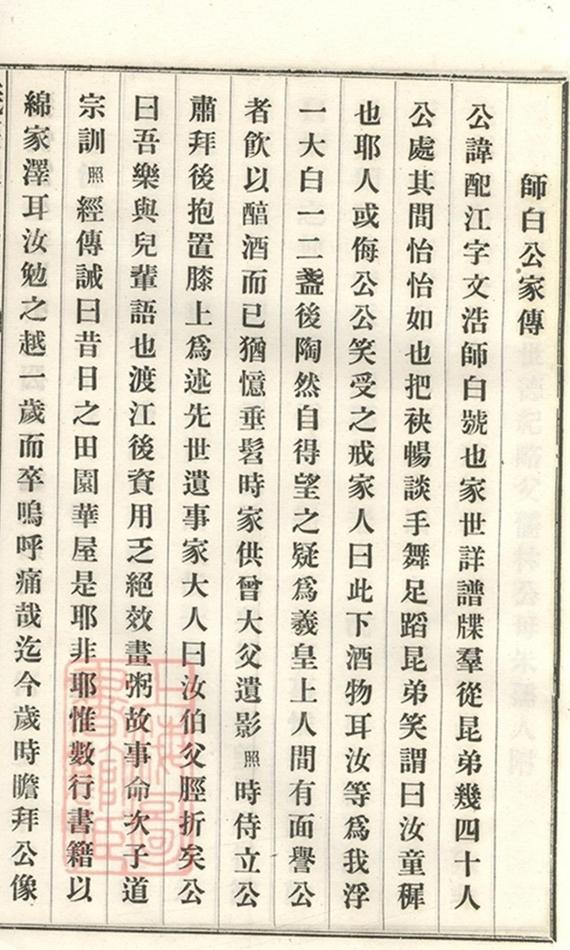 師白公家傳
公諱配江字文浩師白號也家世詳譜牒羣從昆弟幾四十人
公處其間怡怡如也把袂暢談手舞足蹈昆弟笑謂曰汝童穉
也耶人或侮公公笑受之戒家人曰此下酒物耳汝等爲我浮
一大白一二盞後陶然自得望之疑爲羲皇上人間有面譽公
者飲以醕酒而已猶憶垂髫時家供曾大父遺影照時侍立公
肅拜後抱置膝上爲述先世遺事家大人曰汝伯父脛折矣公
曰吾樂與兒輩語也渡江後資用乏絕效畫粥故事命次子道
宗訓照經傳誡曰昔日之田園華屋是耶非耶惟數行書籍以
綿家澤耳汝勉之越一歲而卒嗚呼痛哉迄今歲時瞻拜公像